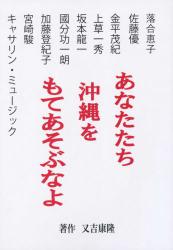 落合恵子
佐藤優
金平茂紀
上草一秀
坂本龍一
國分功一朗
加藤登紀子
宮崎駿
キャサリン・ミュージック
あなたたち
沖縄を
もてあそぶなよ
著作 又吉康隆